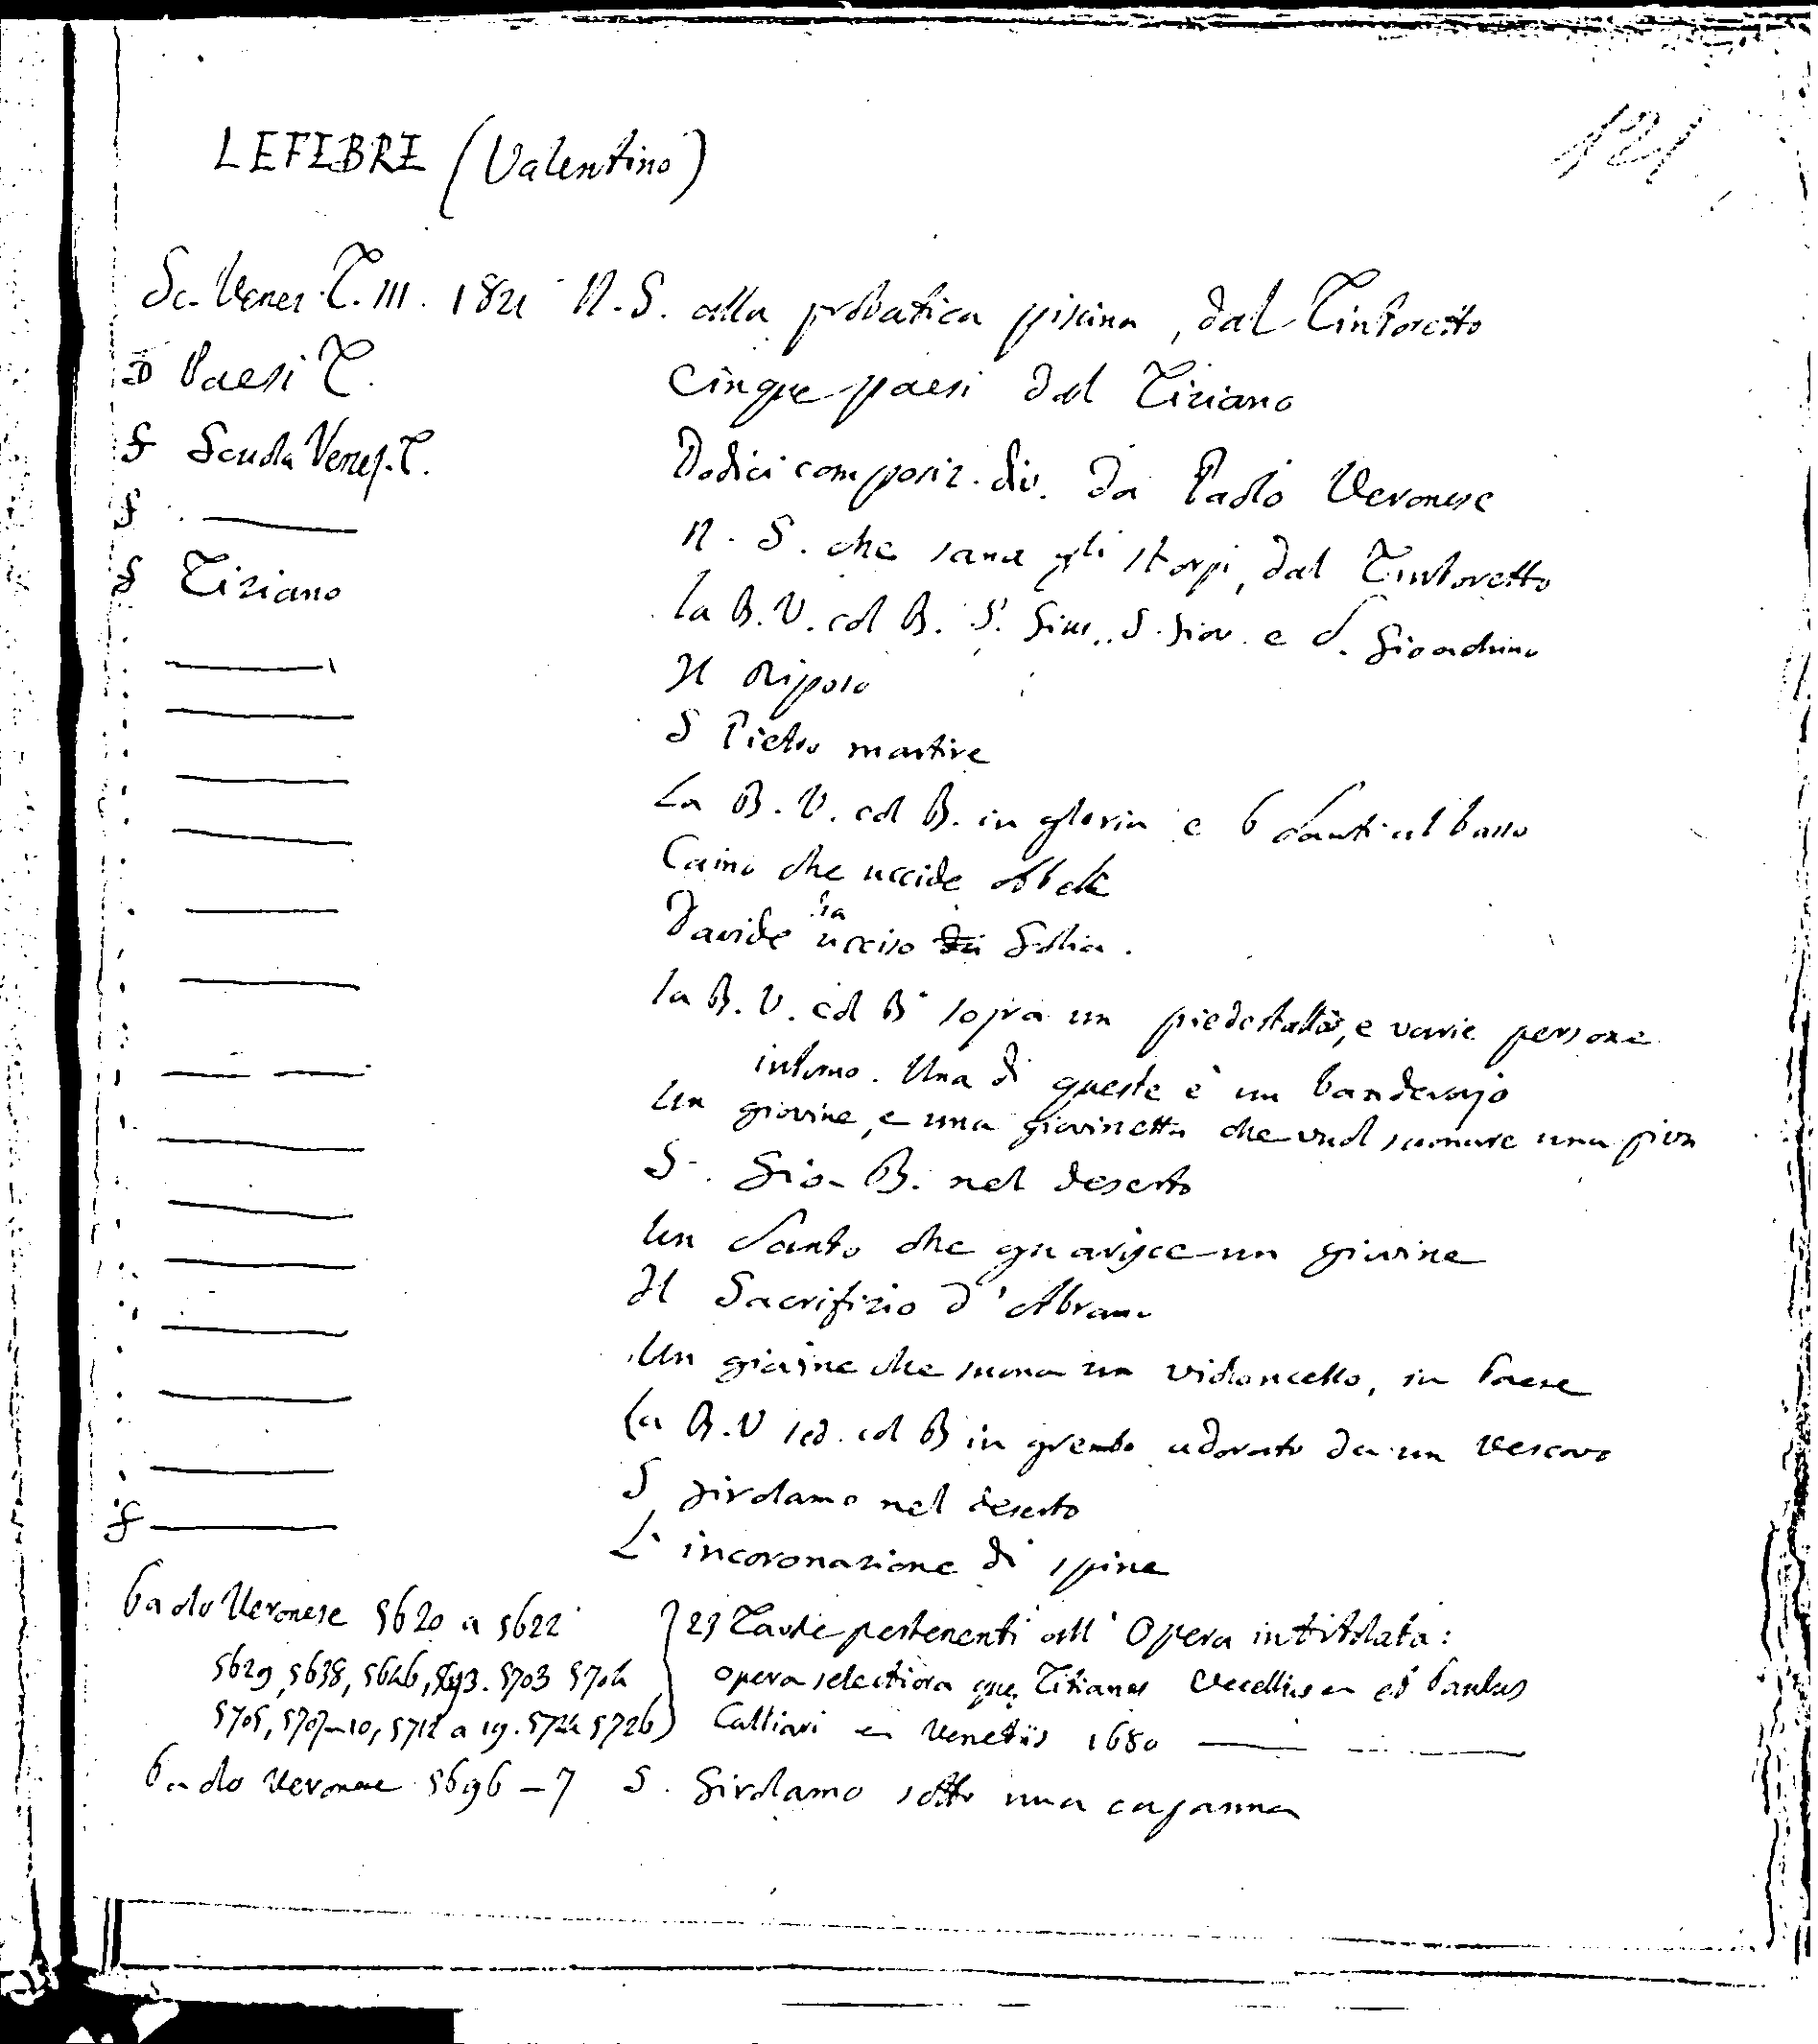 121
LEFIBRE (Valentino)
Sc. Venez. T. III. 1821 N. S. alla probatica piscina, dal Tintoretto
D Paesi T. Cinque paesi dal Tiziano
f Scuola Venez. T. Dodici composiz. div. da Paolo Veronese
f ——— N. S. che sana gli storpi, dal Tintoretto
f Tiziano la B. V. col B. S. Gius. S. Giov. e S. Gioachino
——— Il Riposo
——— S Pietro martire
——— La B. V. col B. in gloria e 6 Santi al basso
——— Caino che uccide Abele
——— Davide ha ucciso Golia.
——— la B. V. col B. sopra un piedestallo, e varie persone
intorno. Una di queste è un banderajo
——— Un giovine, e una giovinetta che vuol suonare una
——— S. Gio. B. nel deserto
——— Un Santo che guarisce un giovine
——— Il Sacrifizio d'Abramo
——— Un giovine che suona un violoncello, in Paese
——— La B. V sed. col B in grembo adorato da un Vescovo
——— S Girolamo nel deserto
f ——— L'incoronazione di spine
Paolo Veronese 5620 a 5622 } 23 Tavole pertenenti all'Opera intitolata:
5629, 5638, 5646, 5703 5704 opera selectiora que Titianus Vecellius et Paulus
5705, 5707-10, 5712 a 19. 5724 5726 Calliari Venetiis 1680 ———
Paolo Veronese 5696-7 S. Girolamo sotto una capanna